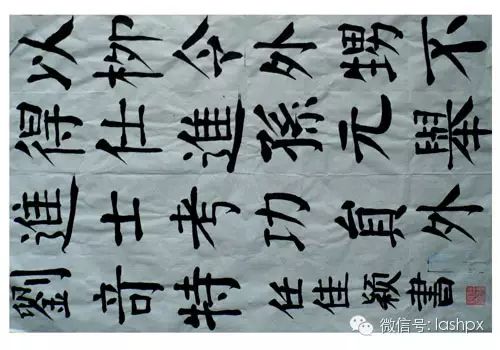 以柳令外甥不
得仕進孫元舉
進士考功員外
劉奇特 任佳颖書
微信号: lashpx